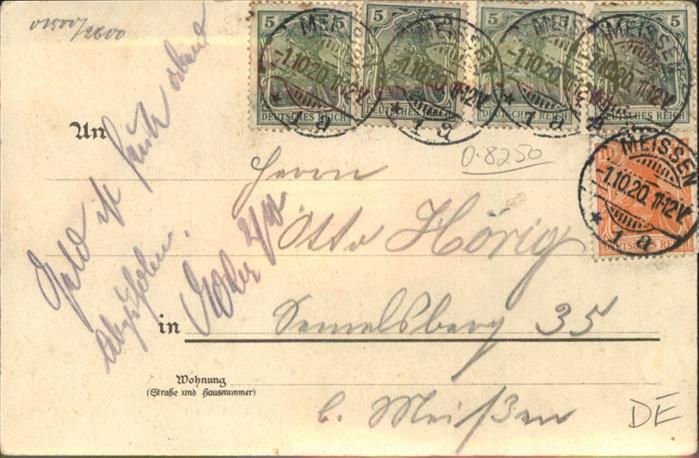 01500/2800
5 5 5 5 5 5 5
DEUTSCHES REICH DEUTSCHES REICH DEUTSCHES REICH DEUTSCHES REICH
MEISSEN MEISSEN MEISSEN MEISSEN
-1.10.20. 11-12V. -1.10.20. 11-12V. -1.10.20. 11-12V. -1.10.20. 11-12V.
* 1a * 1a * 1a
0.8250
10
DEUTSCHES REICH
MEISSEN
-1.10.20. 11-12V.
* 1a
An
Herrn
Otto Hörig
in Semelsberg 35
Wohnung
(Straße und Hausnummer)
b. Meißen
DE
Geld ist
abzuholen.